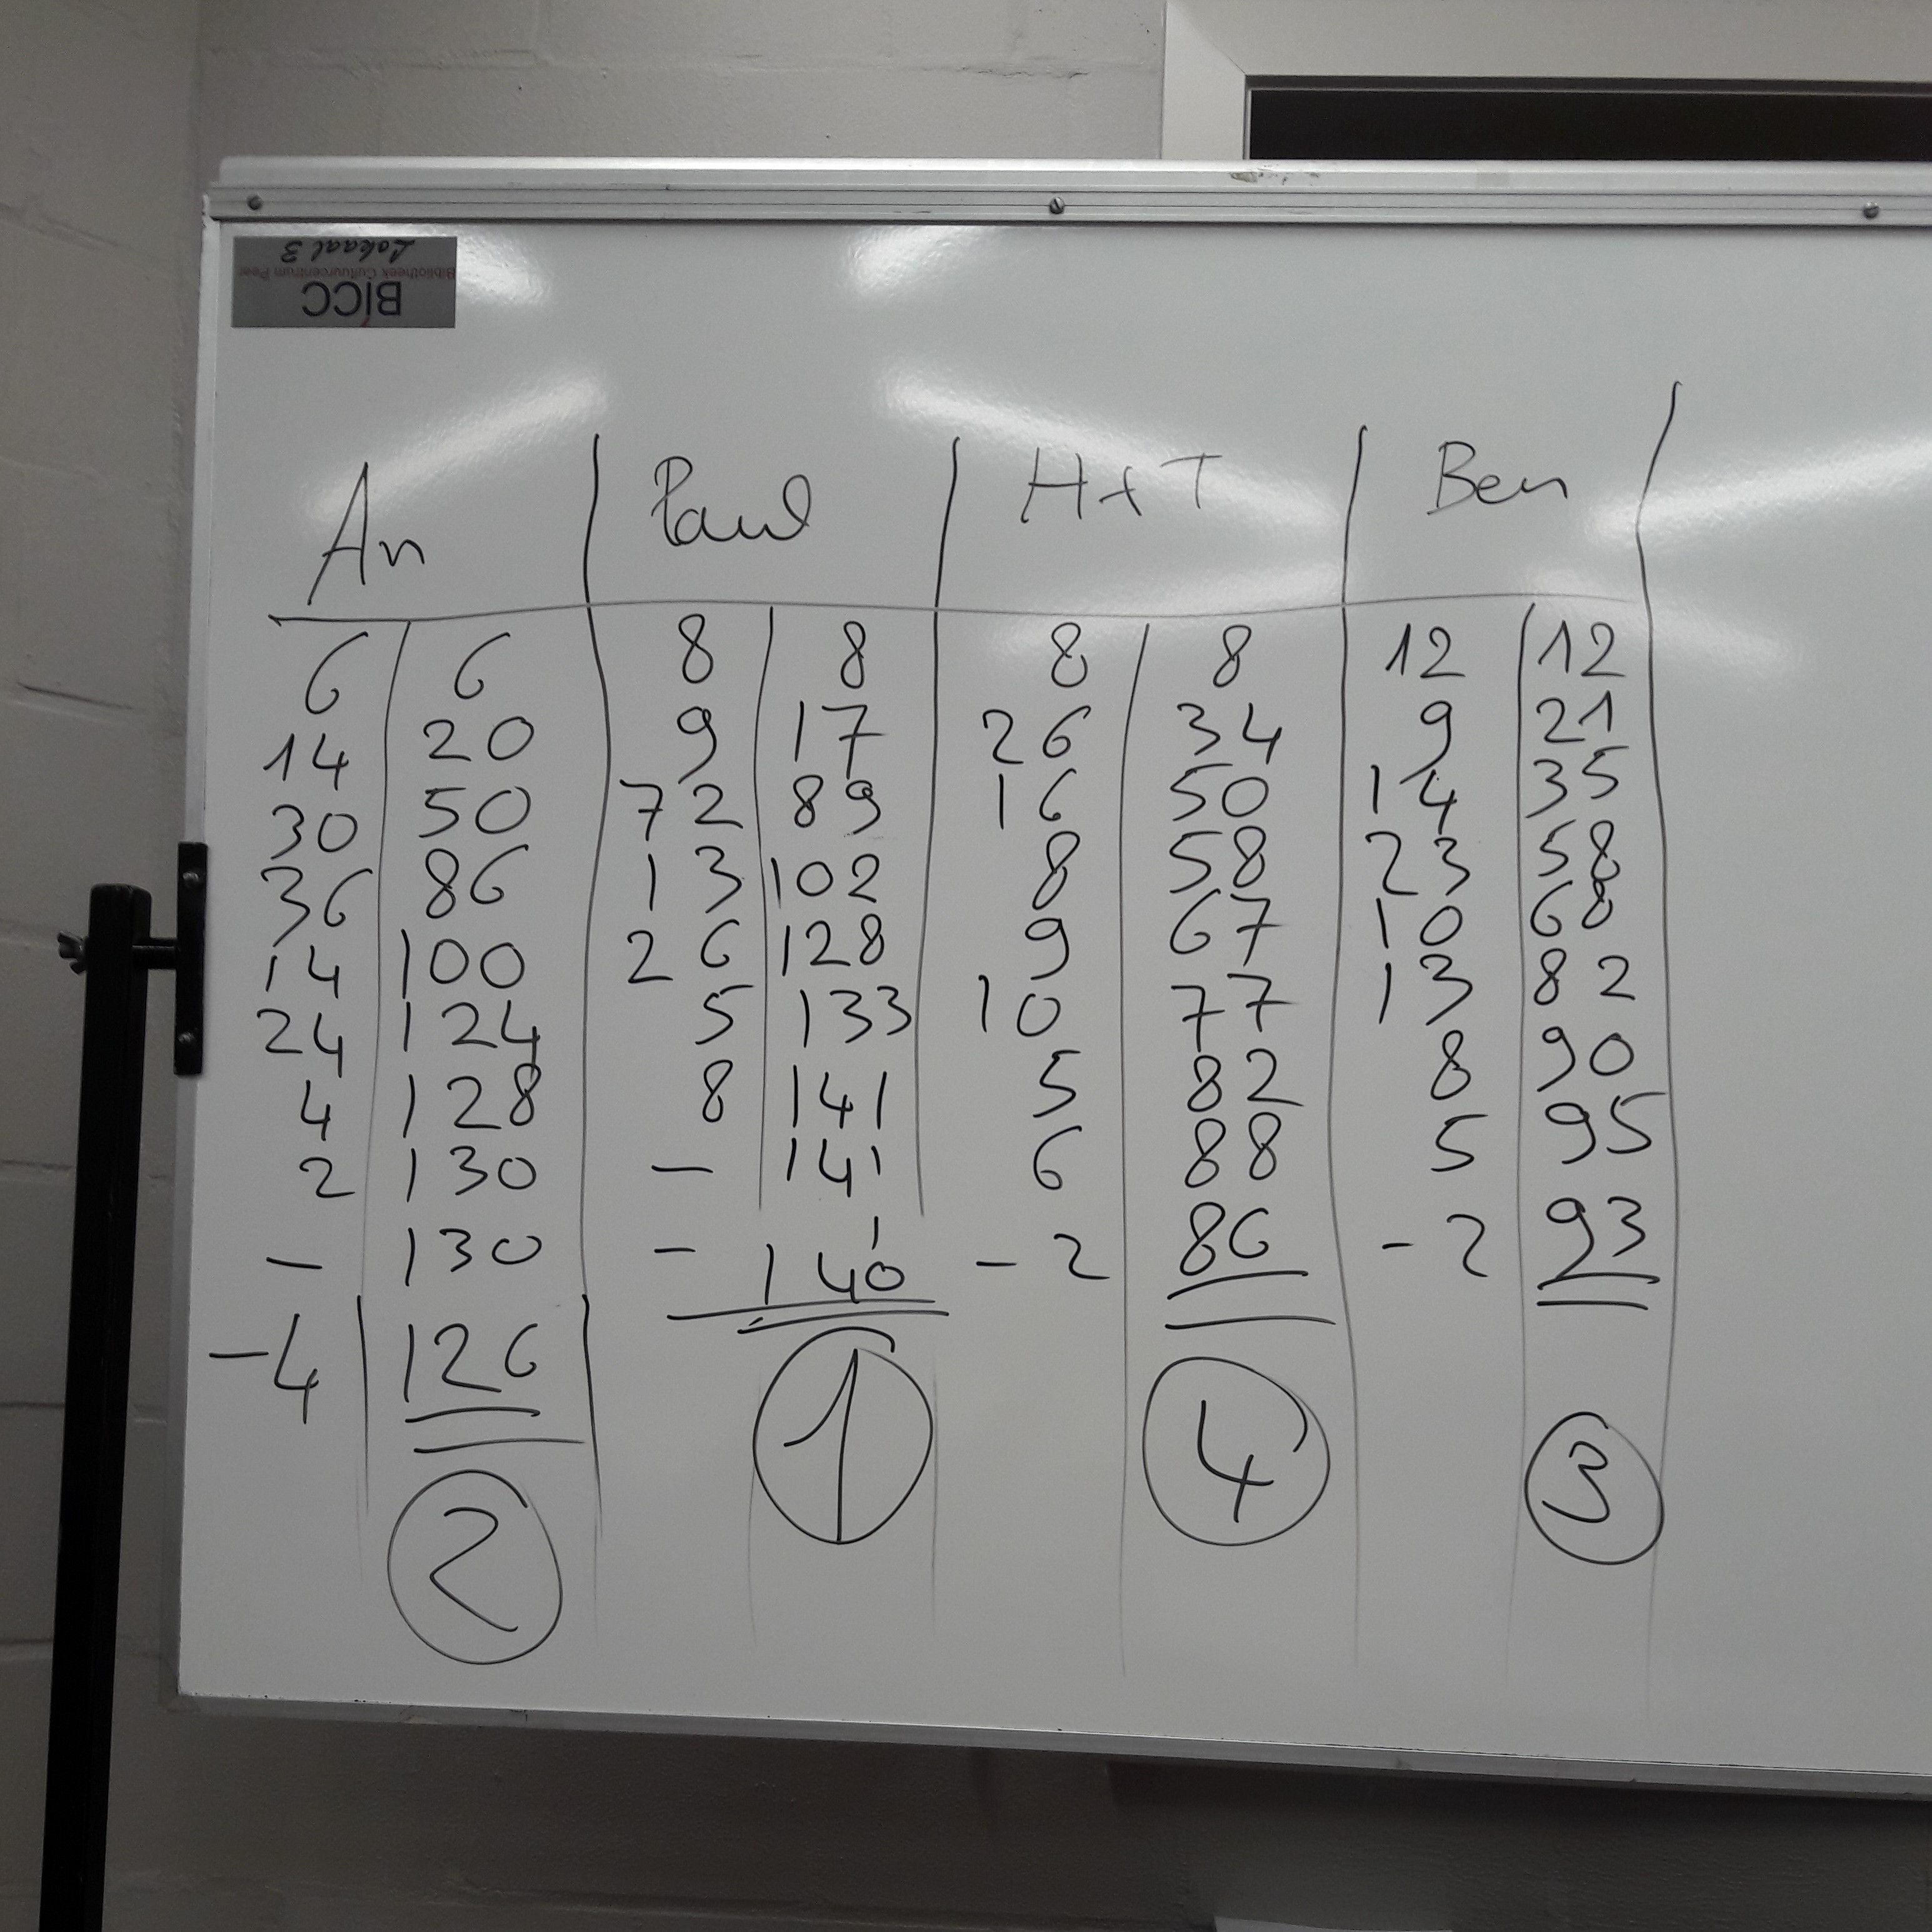 BICC
Bibliotheek Cultuurcentrum Peer
Lokaal 3
An Paul H+T Ben
6 6 8 8 8 8 12 12
14 20 9 17 26 34 9 21
30 50 72 89 16 50 14 35
36 86 13 102 8 58 23 58
14 100 26 128 9 67 10 68
24 124 5 133 10 77 13 82
4 128 8 141 5 82 8 90
2 130 - 141 6 88 5 95
- 130 - 1 140 - 2 86 - 2 93
-4 126
2 1 4 3